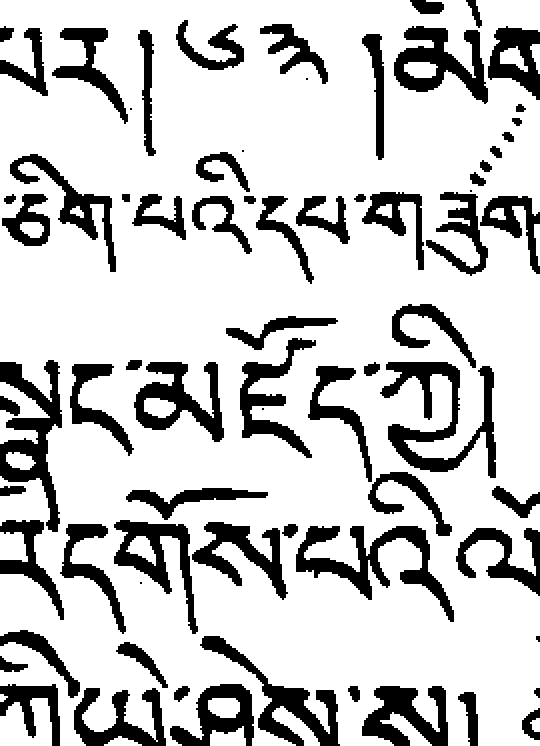 པར། ༦༣ །མིག
ཅིག་པའི་དཔ་གཟུག
སྣང་མཛོད་ཀྱི།
ར་དགོས་པའི་ལོ
ཀི་ཡེ་ཤེས་ས།